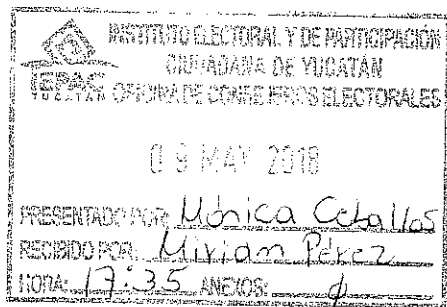 INSTITUTO ELECTORAL Y DE PARTICIPACIÓN
CIUDADANA DE YUCATÁN
IEPAC
YUCATÁN
OFICINA DE CONSEJEROS ELECTORALES
09 MAY 2018
PRESENTADO POR: Mónica Ceballos
RECIBIDO POR: Mirian Pérez
HORA: 17:35 ANEXOS: